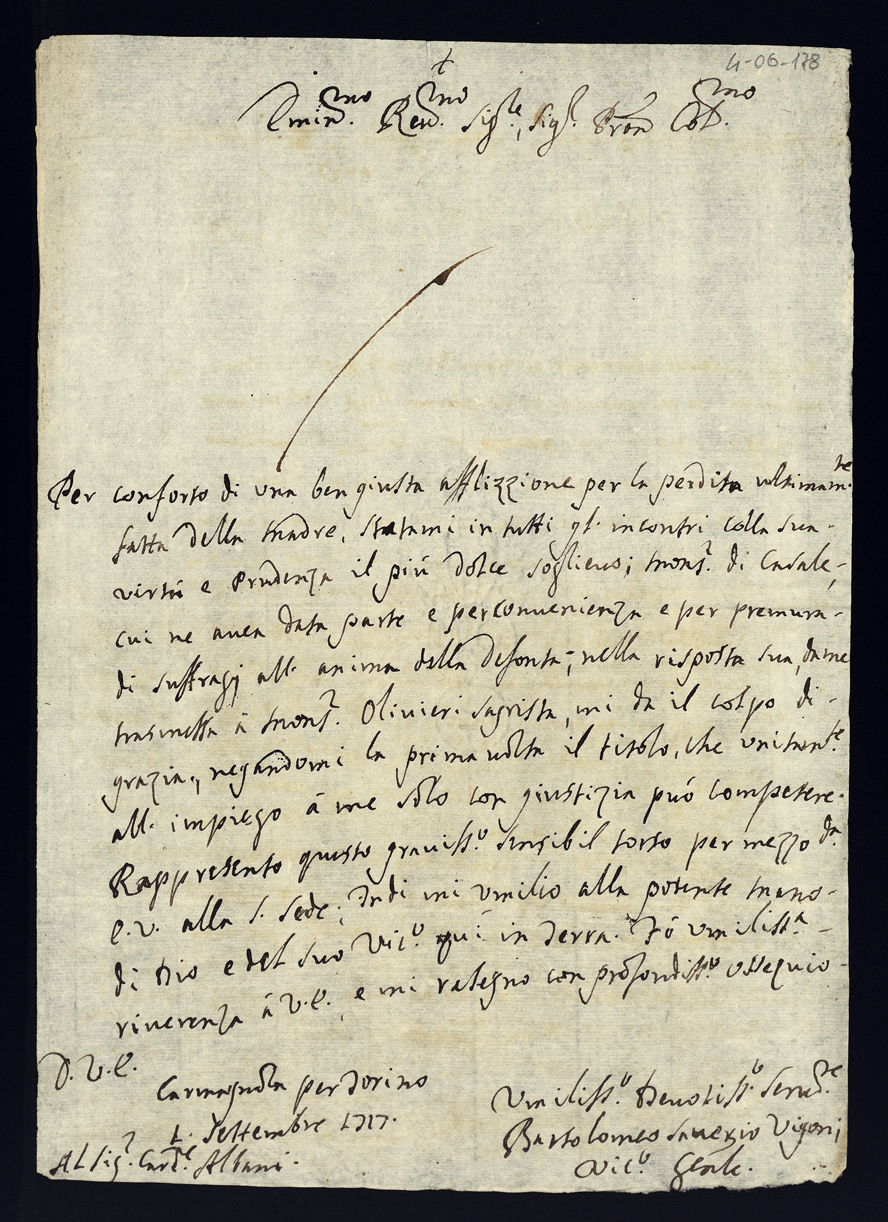 4-06-178
Emin.mo Rev.mo Sig.re, Sig.r Pron Col.mo
Per conforto di una ben giusta afflizzione per la perdita ultimam.te
fatta della Madre, statami in tutti gl' incontri colla sua
virtù e prudenza il più dolce sollievo; Mons.r di Casale,
cui ne avea data parte e per convenienza e per premura
di suffragj all' anima della defonta, nella risposta sua, da me
trasmessa à Mons.r Olivieri Sagrista, mi da il colpo di
grazia, negandomi la prima volta il titolo, che unitam.te
all' impiego à me solo con giustizia può competere.
Rappresento questo graviss.o sensibil torto per mezzo di
E. V. alla S. Sede; Indi mi umilio alla potente mano
di Dio e del suo Vic.o quì in Terra. Fò umiliss.a
riverenza à V. E., e mi rasegno con profondiss.o ossequio
D. V. E.
Carmagnola per Torino
1. Settembre 1717.
Al Sig.r Card.le Albani.
Umiliss.o Devotiss.o Serv.re
Bartolomeo Saverio Vigonj
Vic.o Gen.le.